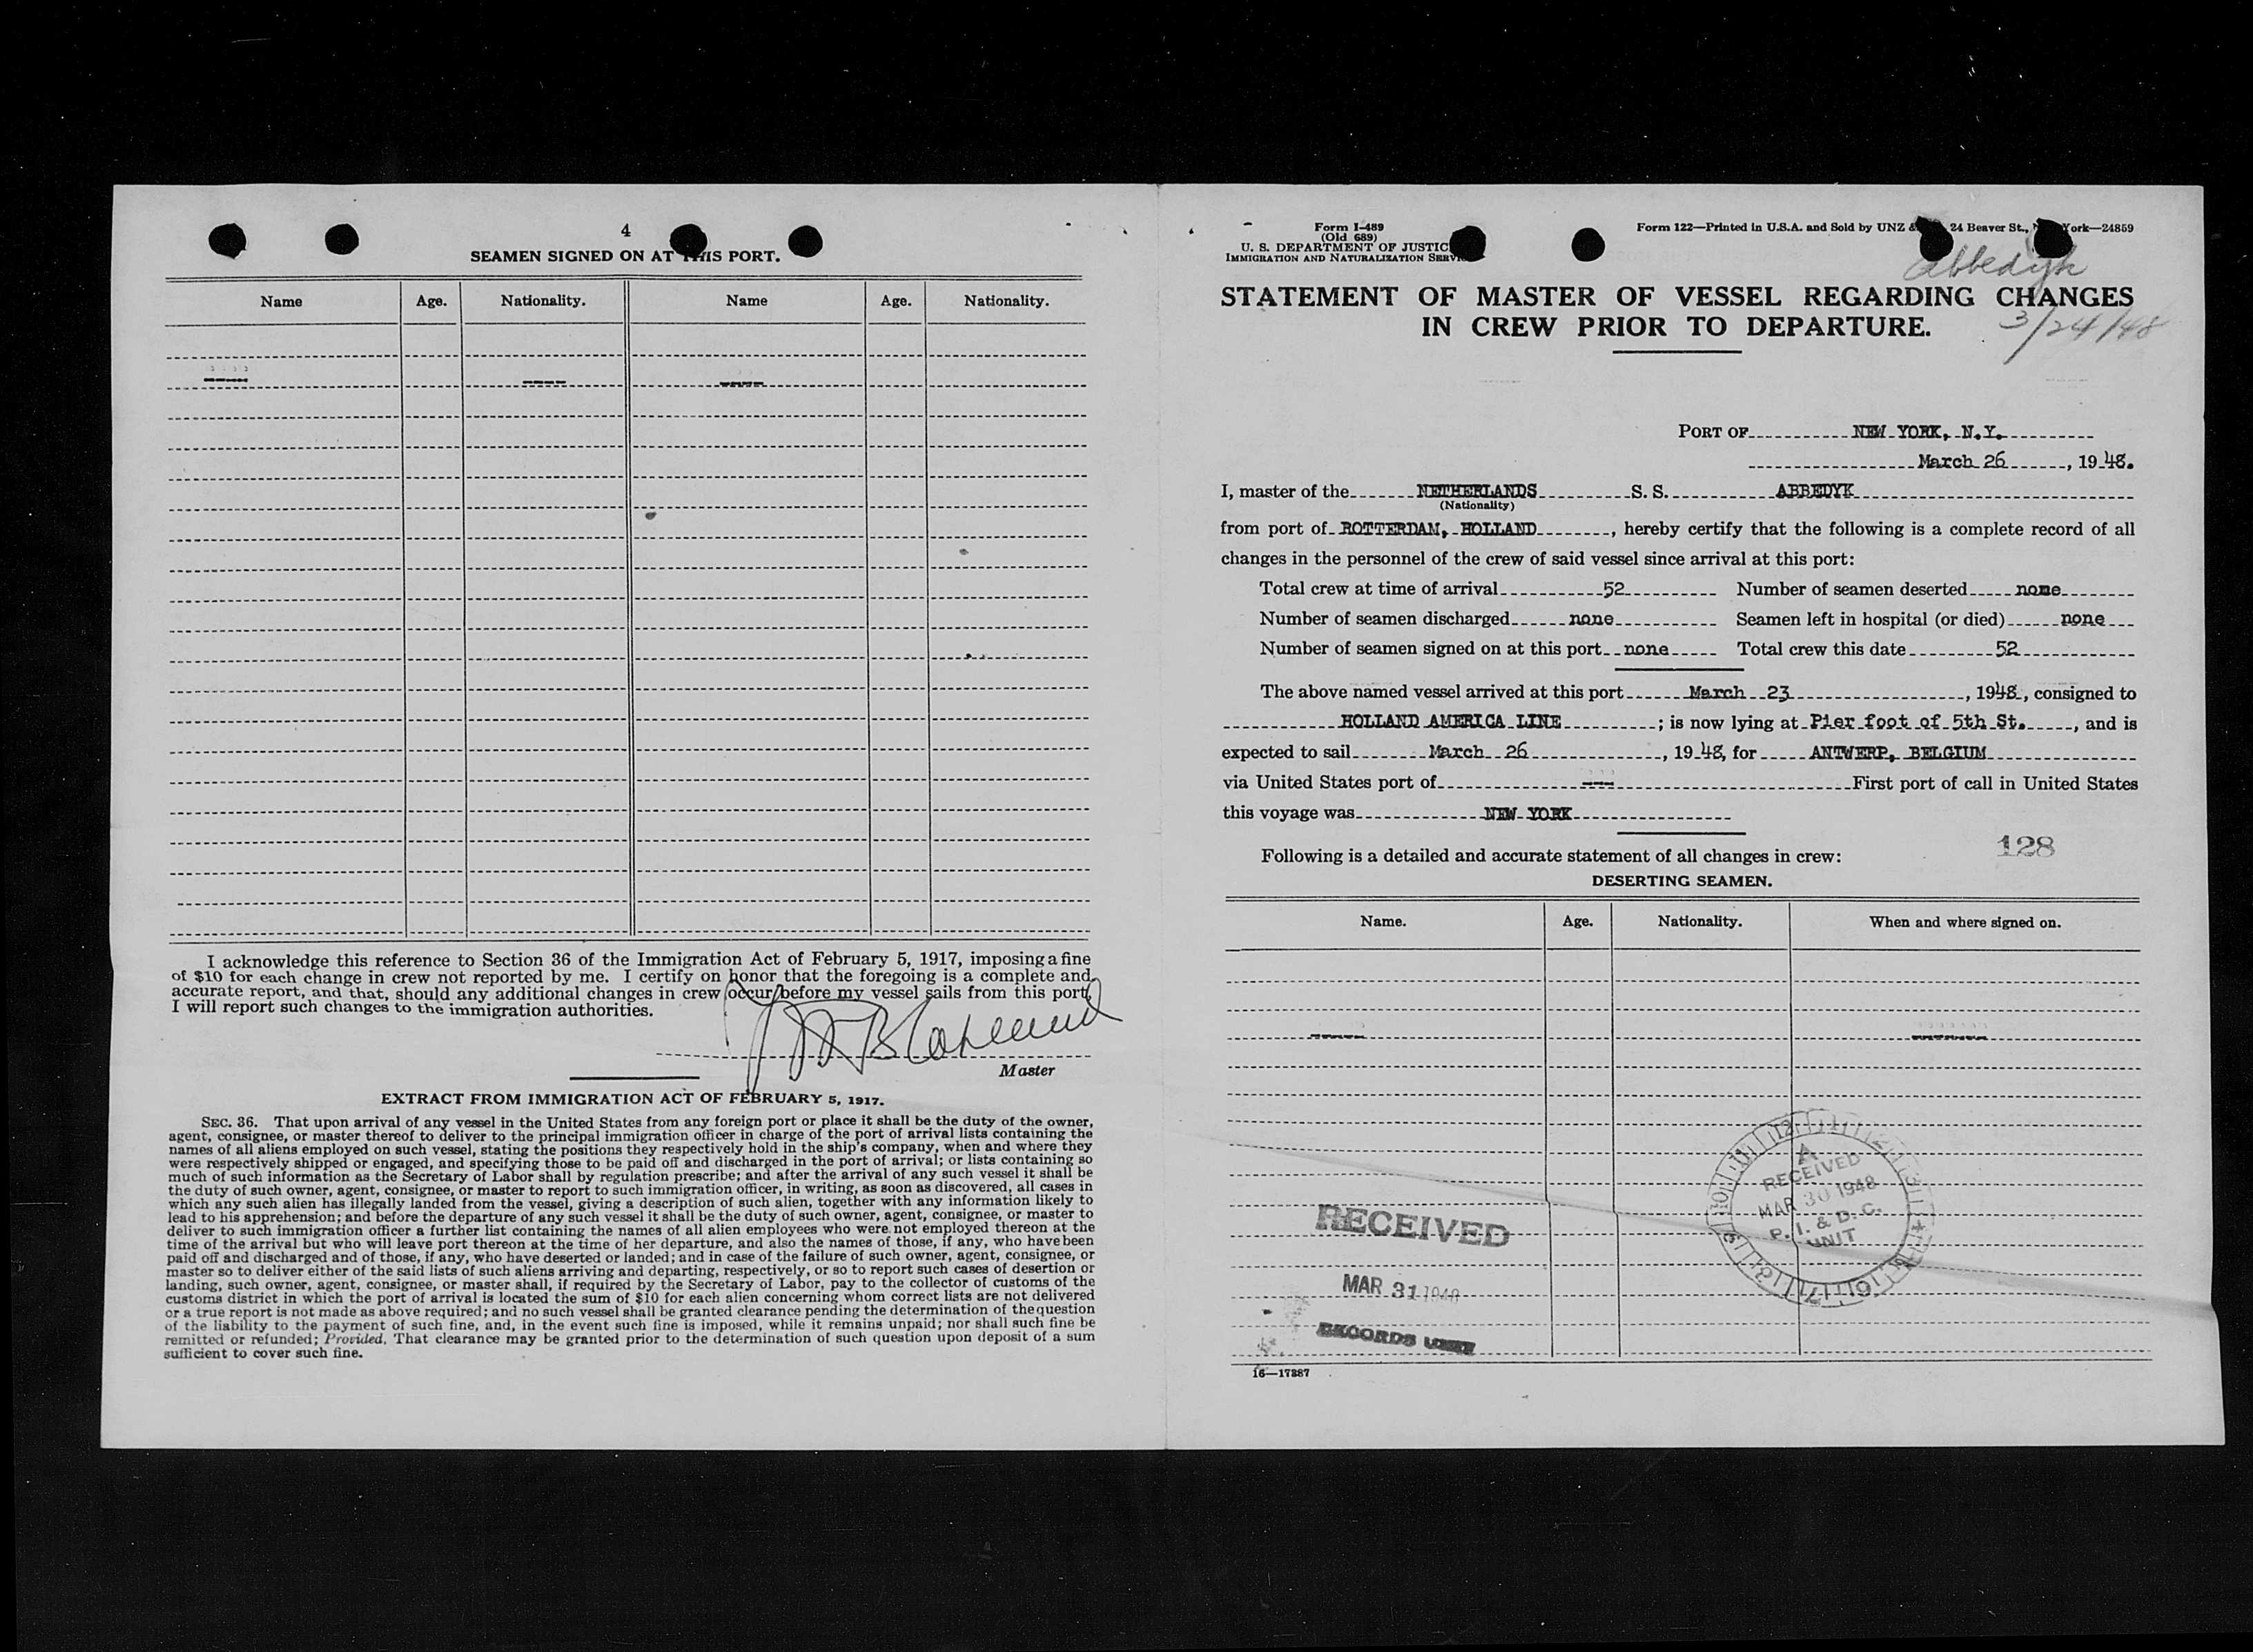 4
SEAMEN SIGNED ON AT THIS PORT.
Name Age. Nationality. Name Age. Nationality.
---- ---- ----
I acknowledge this reference to Section 36 of the Immigration Act of February 5, 1917, imposing a fine
of $10 for each change in crew not reported by me. I certify on honor that the foregoing is a complete and
accurate report, and that, should any additional changes in crew occur before my vessel sails from this port,
I will report such changes to the immigration authorities.
Master
EXTRACT FROM IMMIGRATION ACT OF FEBRUARY 5, 1917.
SEC. 36. That upon arrival of any vessel in the United States from any foreign port or place it shall be the duty of the owner,
agent, consignee, or master thereof to deliver to the principal immigration officer in charge of the port of arrival lists containing the
names of all aliens employed on such vessel, stating the positions they respectively hold in the ship's company, when and where they
were respectively shipped or engaged, and specifying those to be paid off and discharged in the port of arrival; or lists containing so
much of such information as the Secretary of Labor shall by regulation prescribe; and after the arrival of any such vessel it shall be
the duty of such owner, agent, consignee, or master to report to such immigration officer, in writing, as soon as discovered, all cases in
which any such alien has illegally landed from the vessel, giving a description of such alien, together with any information likely to
lead to his apprehension; and before the departure of any such vessel it shall be the duty of such owner, agent, consignee, or master to
deliver to such immigration officer a further list containing the names of all alien employees who were not employed thereon at the
time of the arrival but who will leave port thereon at the time of her departure, and also the names of those, if any, who have been
paid off and discharged and of those, if any, who have deserted or landed; and in case of the failure of such owner, agent, consignee, or
master so to deliver either of the said lists of such aliens arriving and departing, respectively, or so to report such cases of desertion or
landing, such owner, agent, consignee, or master shall, if required by the Secretary of Labor, pay to the collector of customs of the
customs district in which the port of arrival is located the sum of $10 for each alien concerning whom correct lists are not delivered
or a true report is not made as above required; and no such vessel shall be granted clearance pending the determination of the question
of the liability to the payment of such fine, and, in the event such fine is imposed, while it remains unpaid; nor shall such fine be
remitted or refunded; Provided, That clearance may be granted prior to the determination of such question upon deposit of a sum
sufficient to cover such fine.
Form I-489
(Old 689)
U. S. DEPARTMENT OF JUSTICE
IMMIGRATION AND NATURALIZATION SERVICE
Form 122—Printed in U.S.A. and Sold by UNZ & 24 Beaver St., New York—24859
Abbedyk
STATEMENT OF MASTER OF VESSEL REGARDING CHANGES
IN CREW PRIOR TO DEPARTURE.
3/24/48
PORT OF NEW YORK, N.Y.
March 26, 1948.
I, master of the NETHERLANDS S. S. ABBEDYK
(Nationality)
from port of ROTTERDAM, HOLLAND, hereby certify that the following is a complete record of all
changes in the personnel of the crew of said vessel since arrival at this port:
Total crew at time of arrival 52 Number of seamen deserted none
Number of seamen discharged none Seamen left in hospital (or died) none
Number of seamen signed on at this port none Total crew this date 52
The above named vessel arrived at this port March 23, 1948, consigned to
HOLLAND AMERICA LINE; is now lying at Pier foot of 5th St., and is
expected to sail March 26, 1948, for ANTWERP, BELGIUM
via United States port of --- First port of call in United States
this voyage was NEW YORK
128
Following is a detailed and accurate statement of all changes in crew:
DESERTING SEAMEN.
Name. Age. Nationality. When and where signed on.
----- -------
A
RECEIVED
MAR 30 1948
P. I. & D. C.
UNIT
RECEIVED
MAR 31 1948
RECORDS UNIT
16—17887